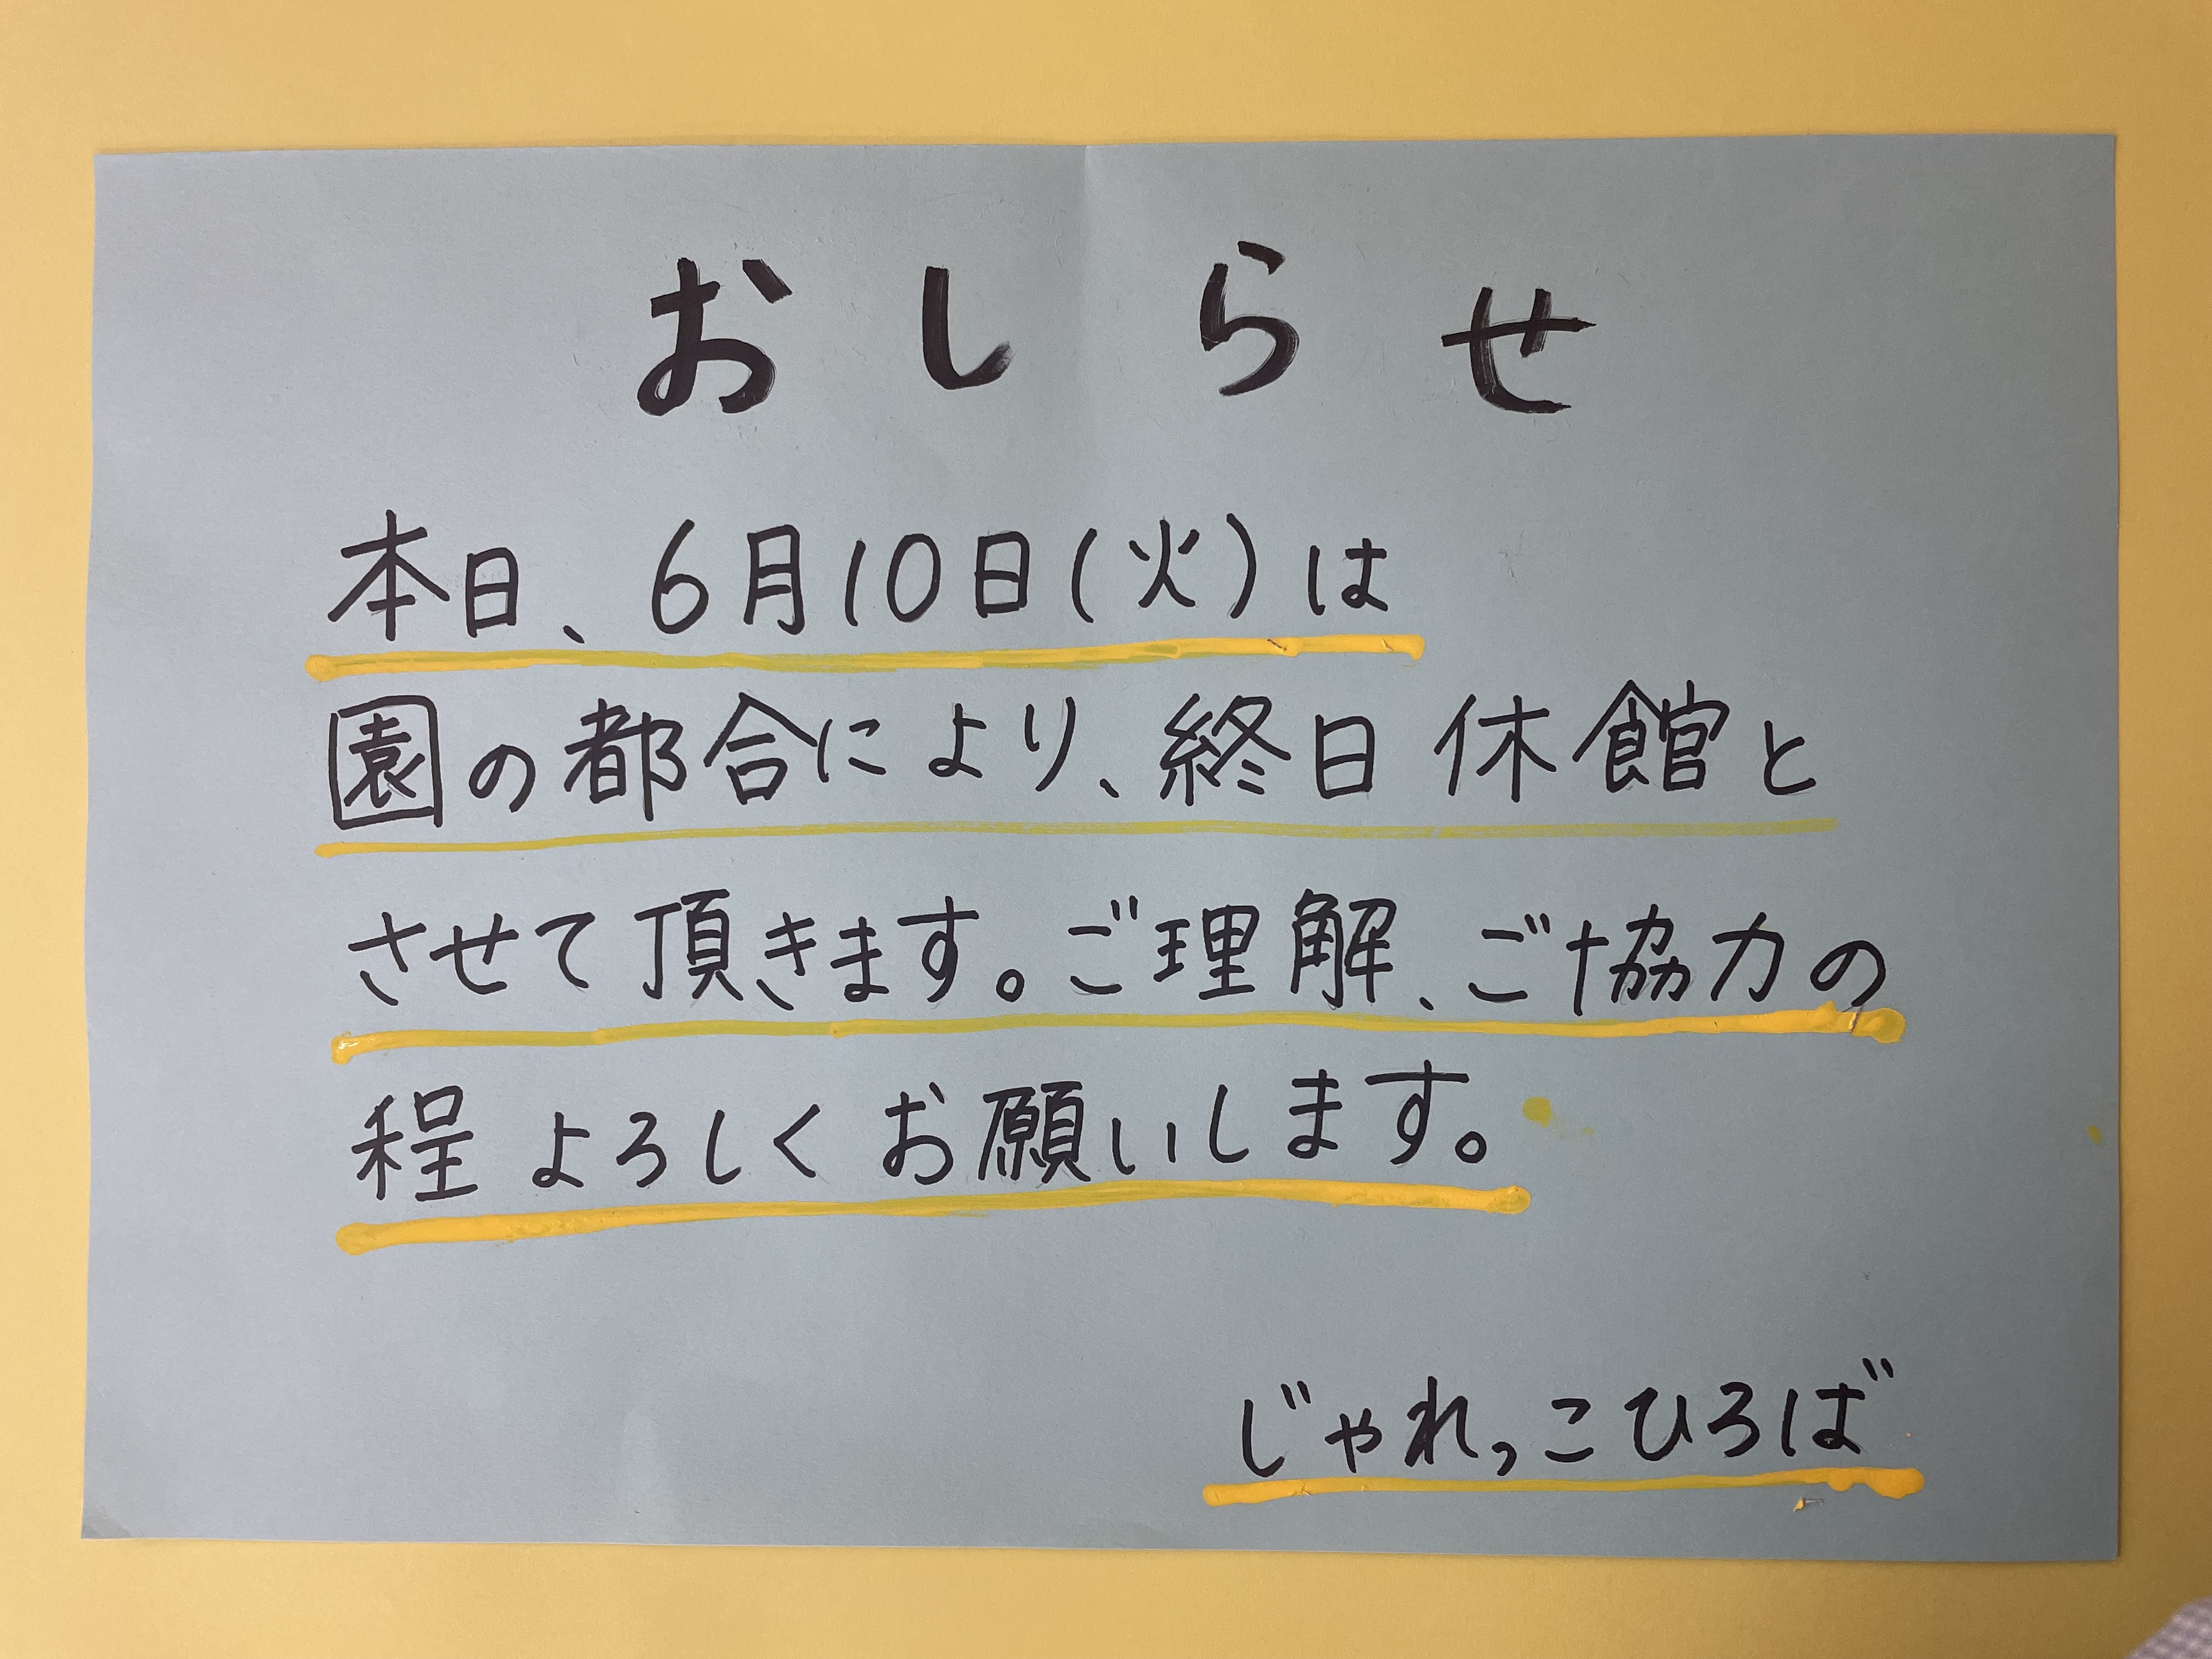 おしらせ
本日、6月10日(火)は
園の都合により、終日休館と
させて頂きます。ご理解、ご協力の
程よろしくお願いします。
じゃれっこひろば